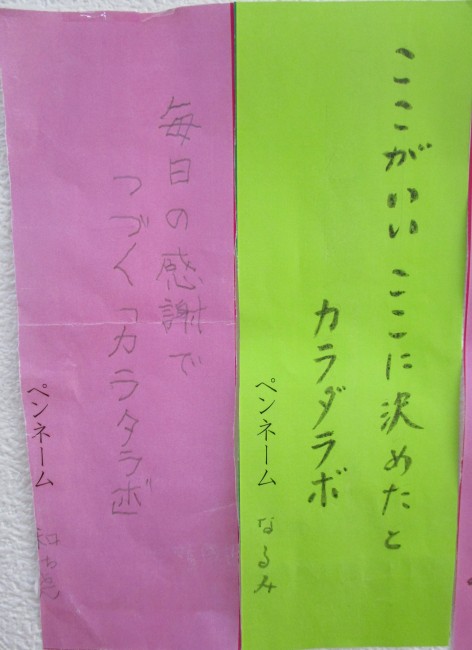 ここがいい ここに決めたと
カラダラボ
ペンネーム なるみ
毎日の感謝で
つづく「カラタラボ」
ペンネーム